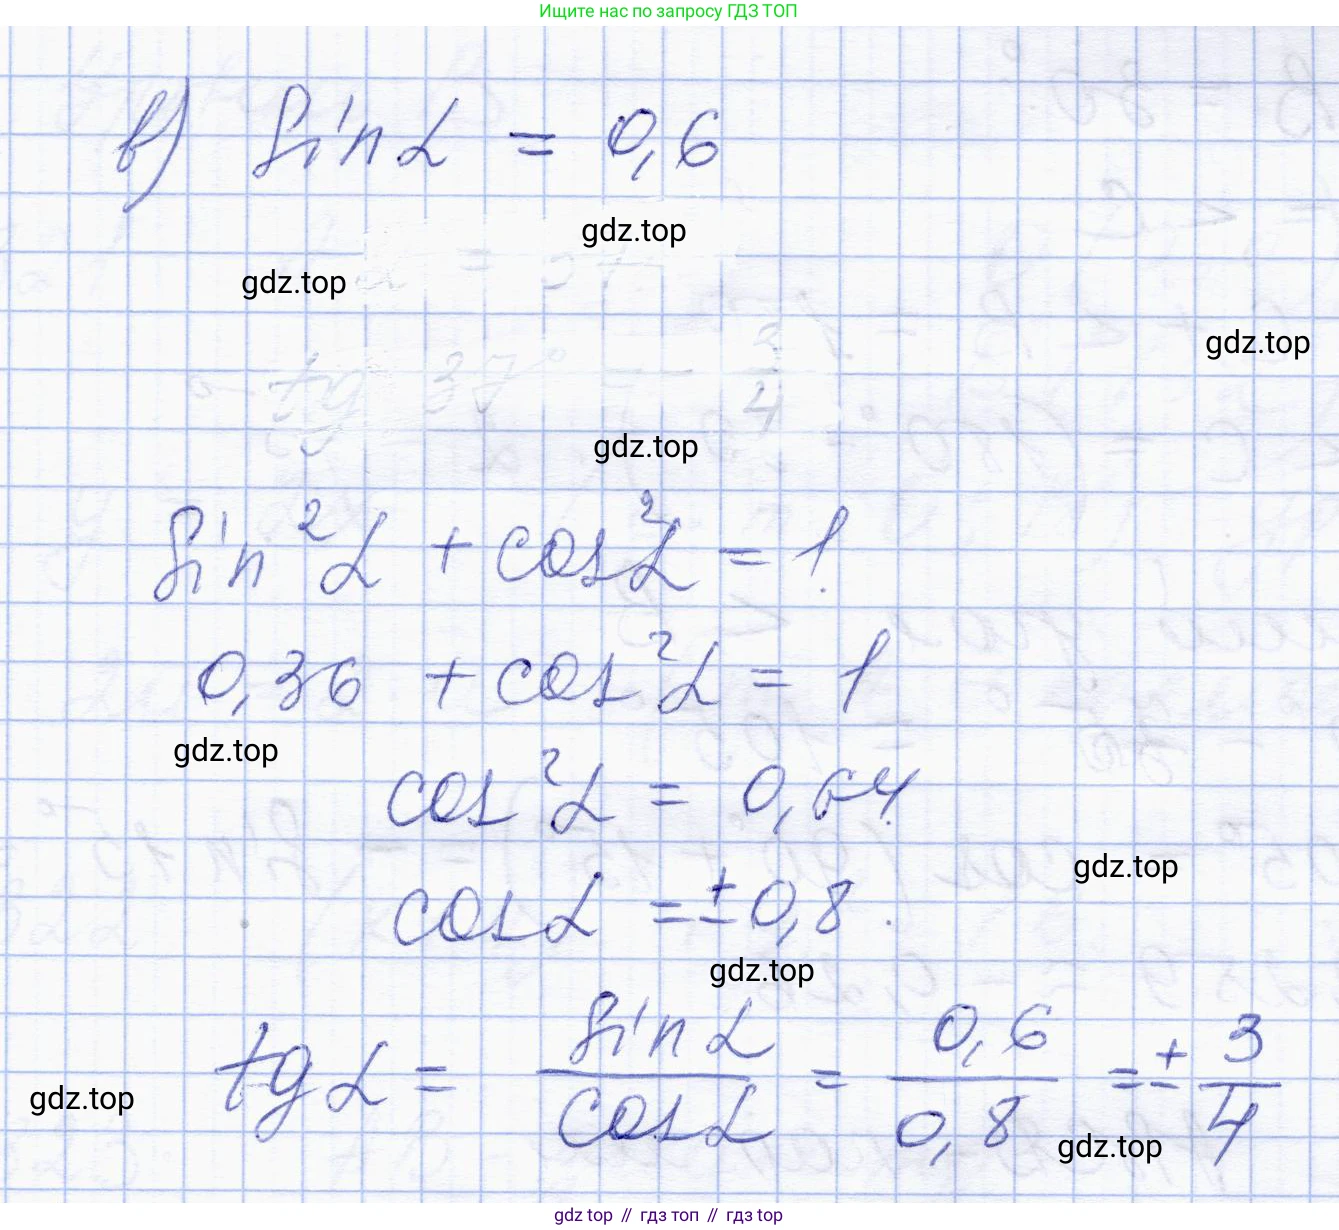 Ищите нас по запросу ГДЗ ТОП
в) sin α = 0,6
gdz.top
gdz.top
gdz.top
tg 37° = - 3/4
gdz.top
sin² α + cos² α = 1.
0,36 + cos² α = 1
gdz.top
cos² α = 0,64.
gdz.top
cos α = ± 0,8.
gdz.top
tg α = sin α / cos α = 0,6 / 0,8 = ± 3/4
gdz.top
gdz.top
gdz top // гдз топ // гдз top